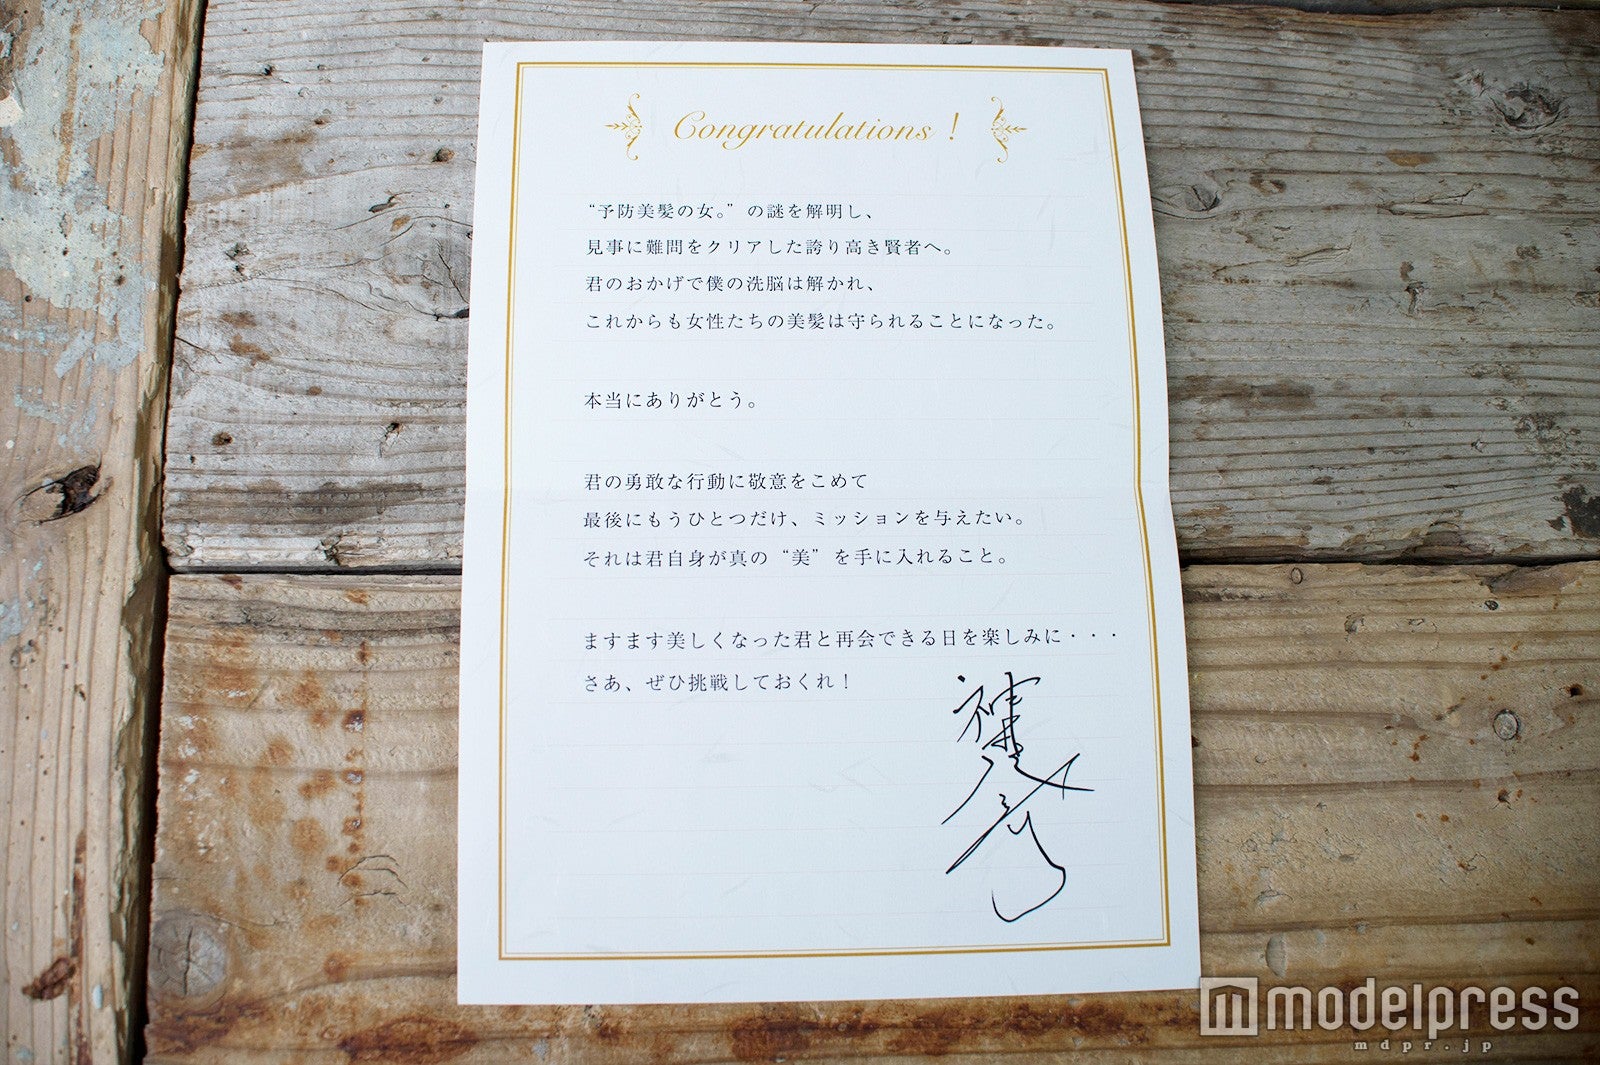 Congratulations !
“予防美髪の女。” の謎を解明し、
見事に難問をクリアした誇り高き賢者へ。
君のおかげで僕の洗脳は解かれ、
これからも女性たちの美髪は守られることになった。
本当にありがとう。
君の勇敢な行動に敬意をこめて
最後にもうひとつだけ、ミッションを与えたい。
それは君自身が真の “美” を手に入れること。
ますます美しくなった君と再会できる日を楽しみに・・・
さあ、ぜひ挑戦しておくれ！
modelpress
mdpr.jp